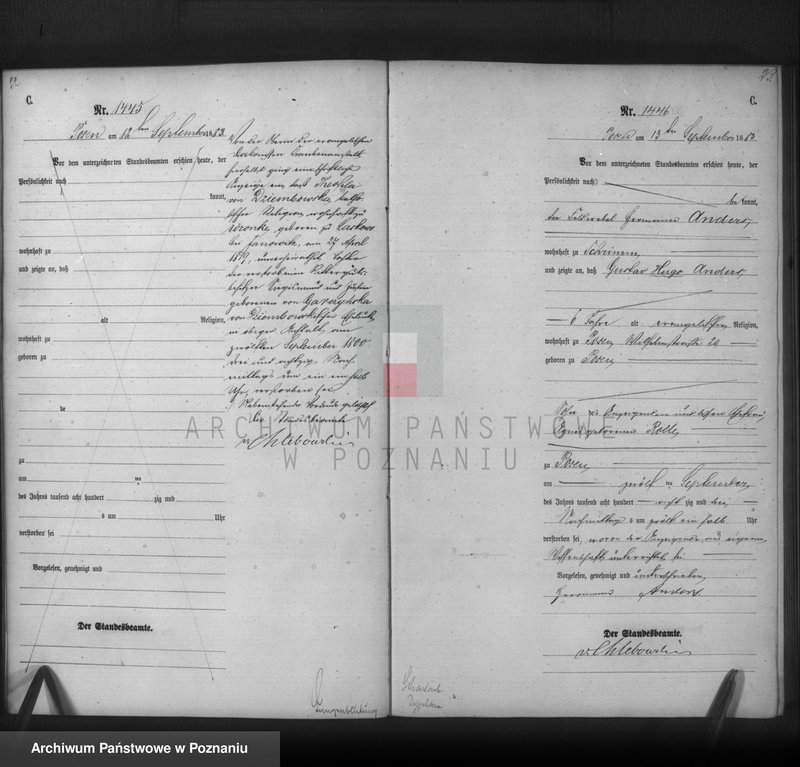 22
C.
Nr. 1445
Posen am 12ten September 1883.
Vor dem unterzeichneten Standesbeamten erschien heute, der
Persönlichkeit nach
kannt,
wohnhaft zu
und zeigte an, daß
alt Religion,
wohnhaft zu
geboren zu
de
zu
am ten
des Jahres tausend acht hundert zig und
s um Uhr
verstorben sei
Vorgelesen, genehmigt und
Der Standesbeamte.
Von der Oberin der evangelischen
Anzeige ein, daß Thekla
von Dziembowska, katho-
lischer Religion, wohnhaft zu
Wronke, geboren zu
bei Janowitz, am 27 April
1819, unverehelicht, Tochter
der verstorbenen Ritterguts-
besitzer
geborenen von Garczynska
von Dziembowskischen Eheleute
in obiger Anstalt, am
zwölften September 1800
drei und achtzig Nach-
mittags um ein einhalb
Uhr, verstorben sei.
Nebenstehender Vordruck gelöscht
Der Standesbeamte
v. Chlebowski
Lungenblutung
23
Nr. 1446
C.
Posen am 13ten September 1883
Vor dem unterzeichneten Standesbeamten erschien heute, der
Persönlichkeit nach
bekannt,
der Feldwebel Hermann Anders,
wohnhaft zu Schrimm,
und zeigte an, daß Gustav Hugo Anders,
6 Jahre alt evangelischer Religion,
wohnhaft zu Posen, Wilhelmstraße 26
geboren zu Posen
Sohn des Anzeigenden und dessen Ehefrau
geborene Rolle,
zu Posen,
am zwölf ten September
des Jahres tausend acht hundert acht zig und drei,
Nachmittag s um zwölf ein halb Uhr
verstorben sei, wovon der Anzeigende aus eigener
Wissenschaft unterrichtet sei
Vorgelesen, genehmigt und unterschrieben
Hermann Anders
Der Standesbeamte.
v. Chlebowski
Scharlach
ARCHIWUM PAŃSTWOWE
W POZNANIU
Archiwum Państwowe w Poznaniu